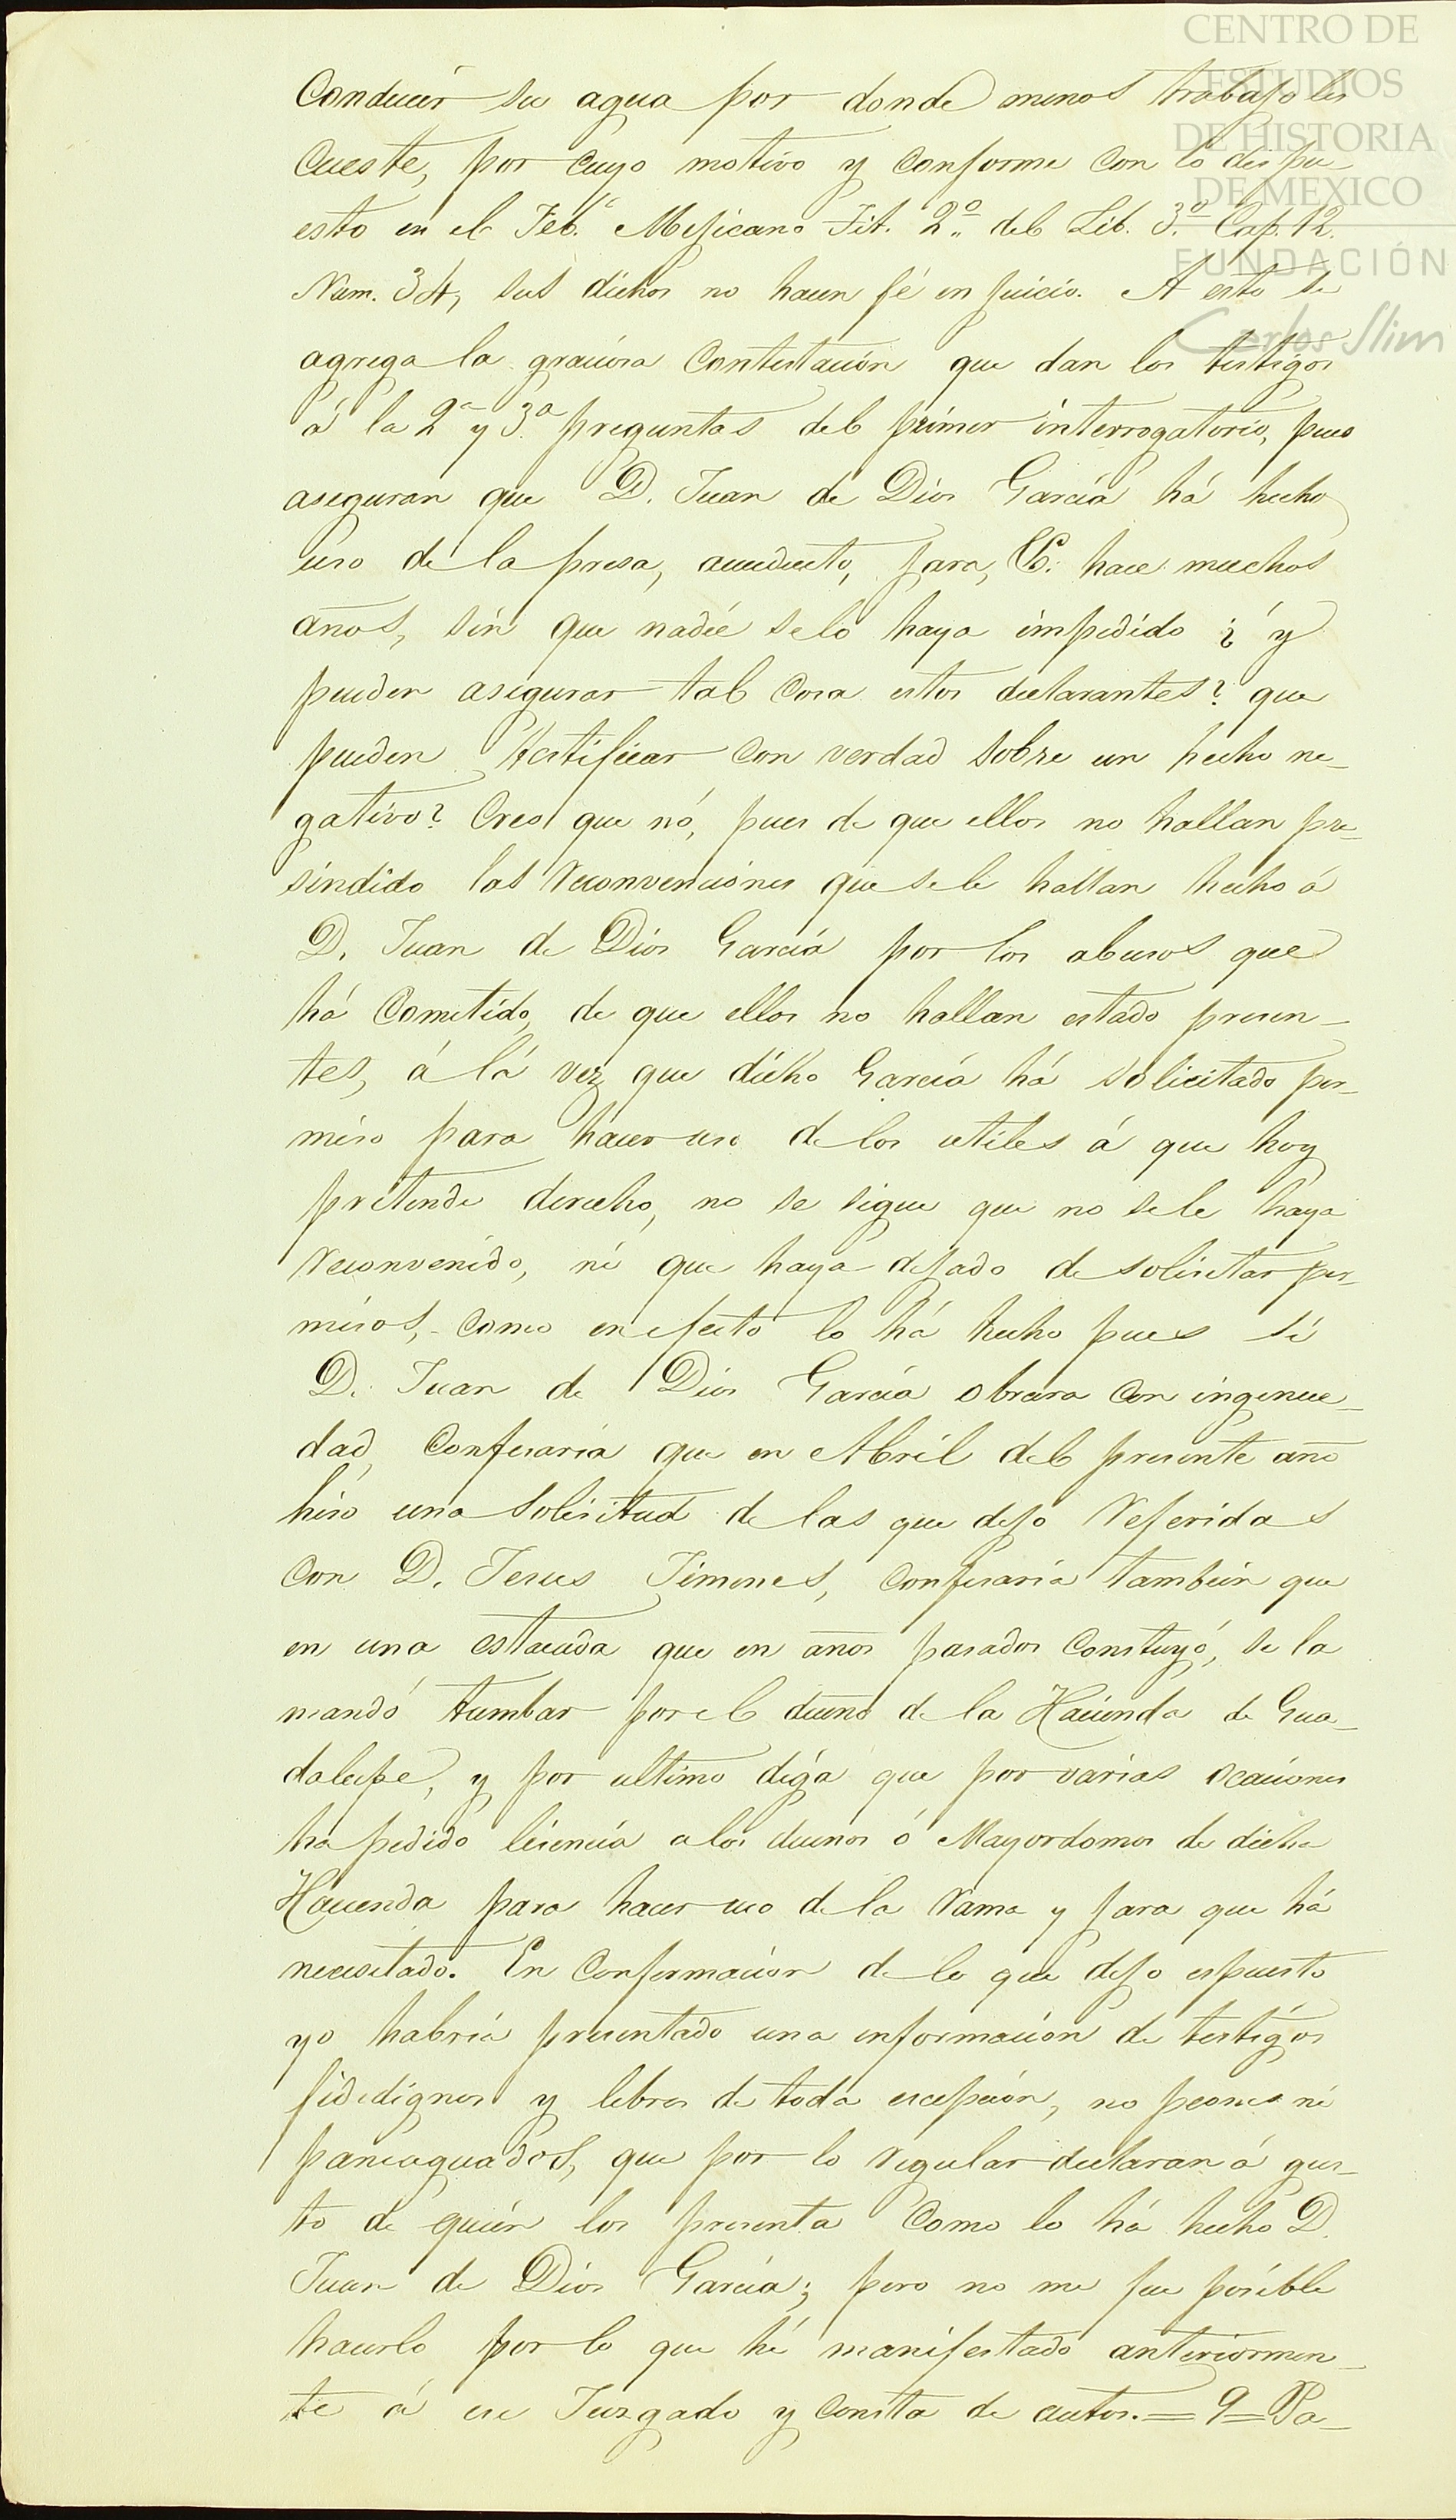 CENTRO DE
ESTUDIOS
DE HISTORIA
DE MEXICO
FUNDACIÓN
Carlos Slim
Conducir su agua por donde menos trabajo les
Cueste, por cuyo motivo y conforme con lo dispu-
esto en el Feb.º Mejicano Tit. 2º del Lib. 3º Cap. 12.
Num. 34, sus dichos no hacen fé en juicio. A esto se
agrega la graciosa Contestación que dan los testigos
á la 2ª y 3ª preguntas del primer interrogatorio, pues
aseguran que D. Juan de Dios García há hecho
uso de la presa, acueducto, jara, &. hace muchos
años, sin que nadie selo haya impedido ¿ y
pueden asegurar tal Cosa estos declarantes? que
pueden testificar con verdad sobre un hecho ne-
gativo? Creo que nó, pues de que ellos no hallan pre-
sindido las reconvenciones que sele hallan hecho á
D. Juan de Dios García por los abusos que
há Cometido, de que ellos no hallan estado presen-
tes, á lá vez que dicho García há solicitado per-
miso para hacer uso de los utiles á que hoy
pretende derecho, no se sigue que no sele haya
reconvenido, ni que haya dejado de solicitar per-
misos, como en efecto lo há hecho pues si
D. Juan de Dios García obrara Con ingenue-
dad, Confesaria que en Abril del presente año
hiso una solisitud de las que dejo referidas
Con D. Jesus Jimenes, confesaria tambien que
en una estacada que en años pasados Constuyó, se la
mandó tumbar por el dueño de la Hacienda de Gua-
dalupe, y por ultimo diga que por varias ocaciones
ha pedido lisencia a los dueños ó Mayordomos de dicha
Hacienda para hacer uso de la rama y jara que há
necesitado. En Conformacion de lo que dejo espuesto
yo habria presentado una informacion de testigos
fidedignos y libres de toda escepción, no peones ni
paneaguados, que por lo regular declaran á gus-
to de quien los presenta Como lo há hecho D.
Juan de Dios García; pero no me fue posible
hacerlo por lo que hé manifestado anteriormen-
te á ese Juzgado y Consta de autos. = 9 = Pa-